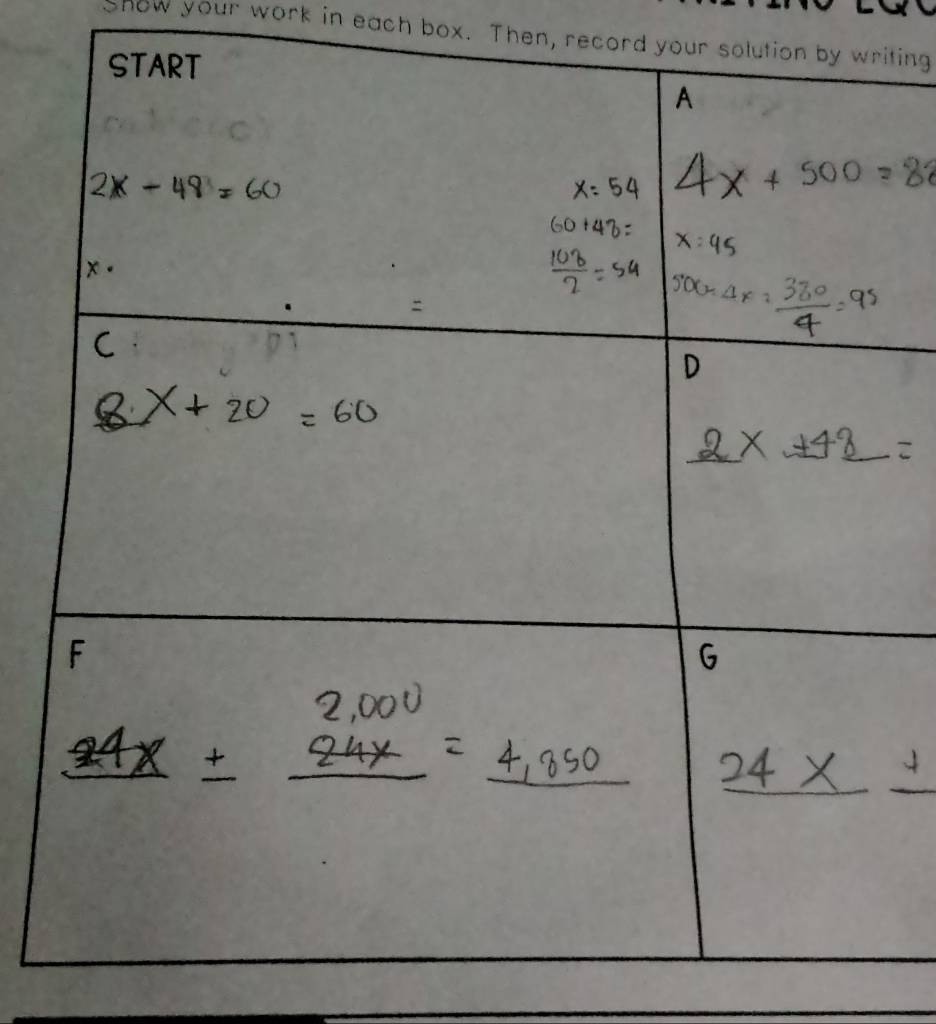 Show your work in each box. Then, record your solution by writing
START
2x - 48 = 60
x = 54
60 + 48 =
108/2 = 54
x
=
A
4x + 500 = 88
x = 95
500 - 4x = 380/4 = 95
C
8x + 20 = 60
D
2x + 48 =
F
2,000
24x + 24x = 4,850
G
24x +